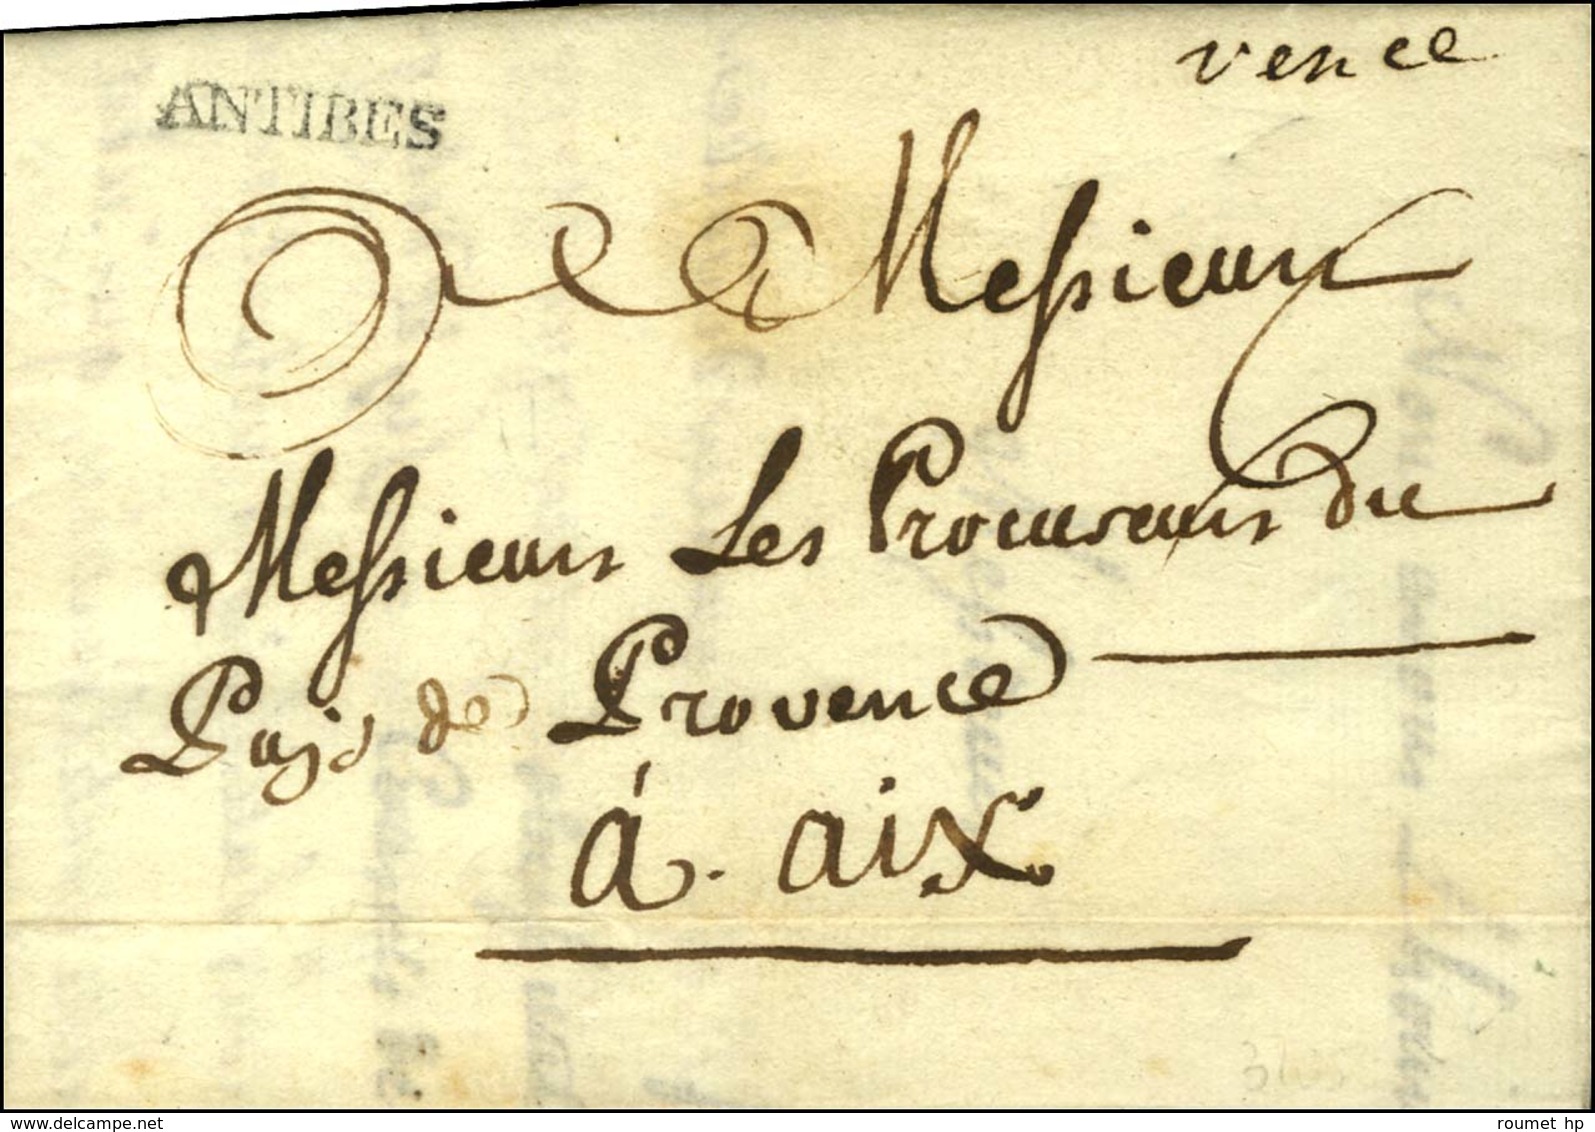 vence
ANTIBES
A Messieurs
Messieurs Les Procureurs du
Païs de Provence
á. aix
delcampe.net
roumet hp